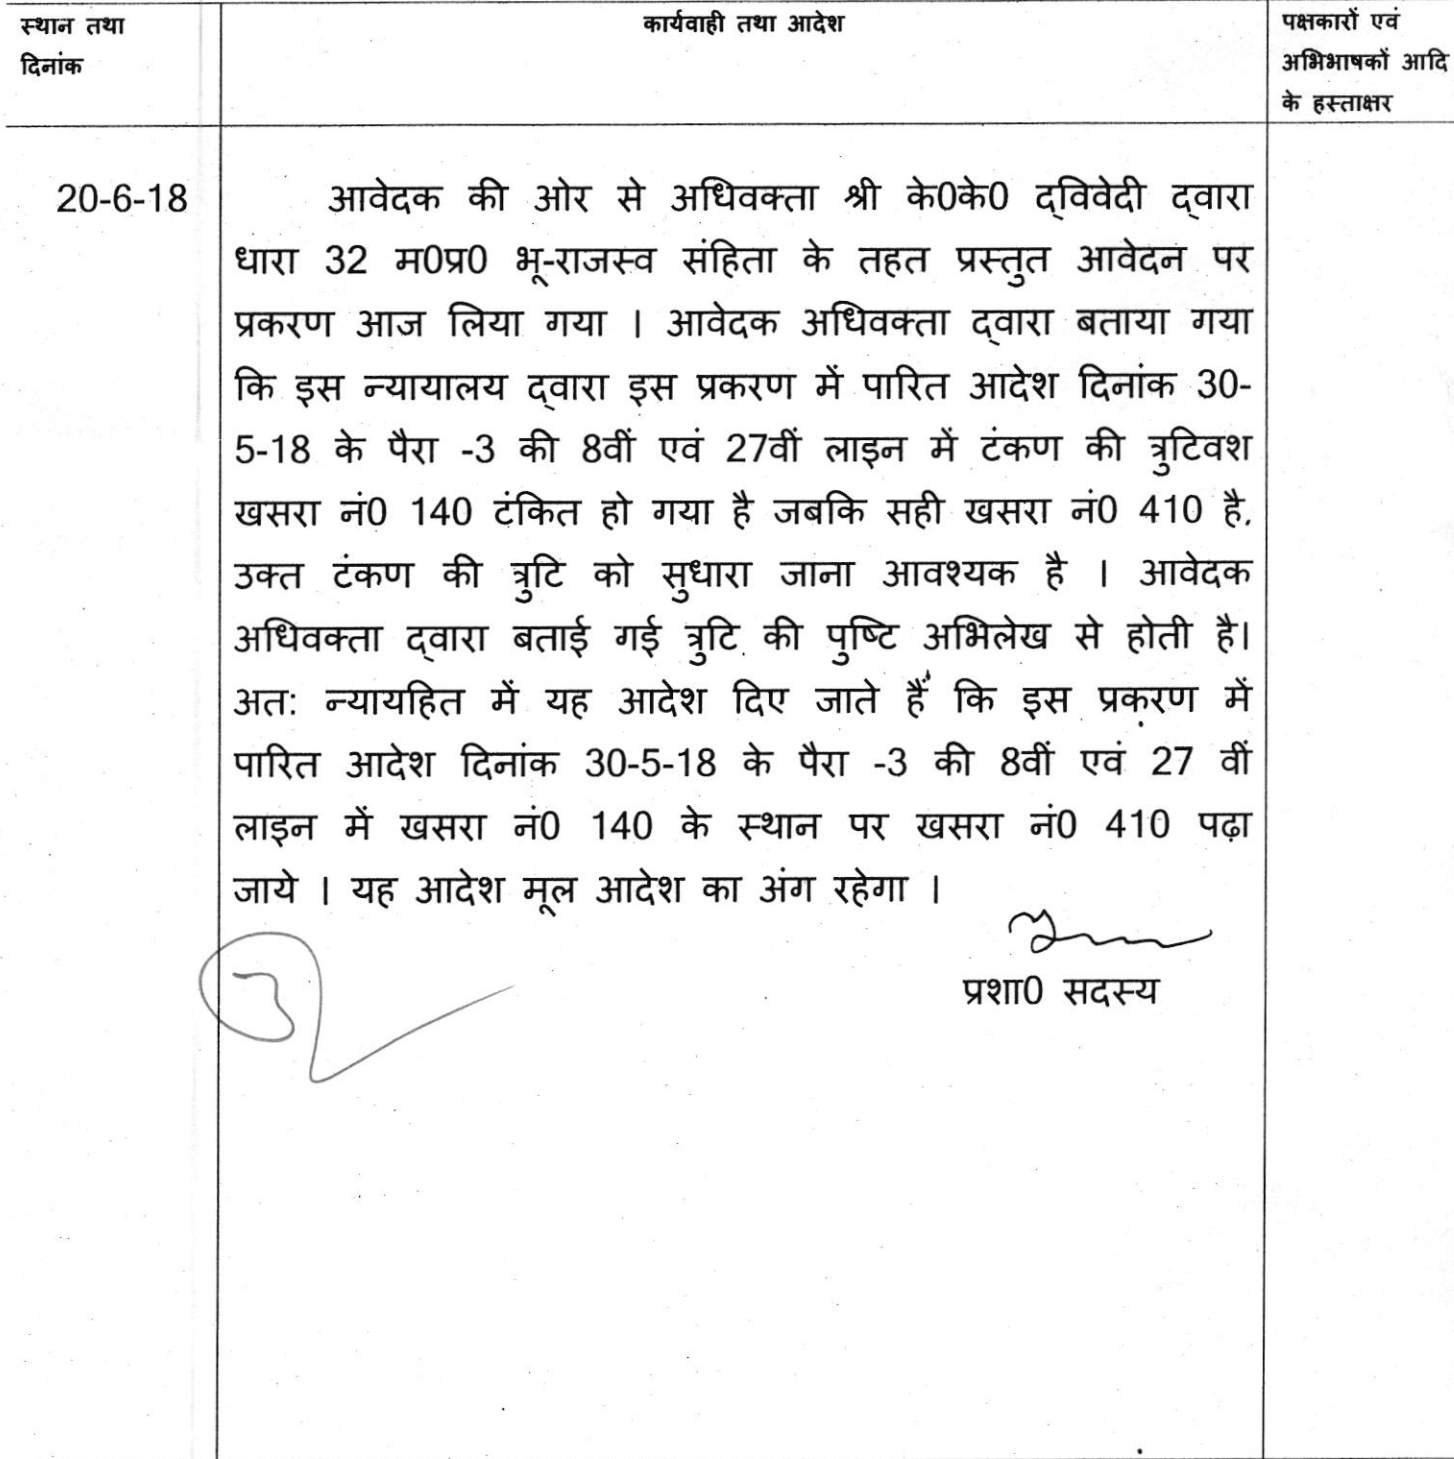 स्थान तथा
दिनांक
कार्यवाही तथा आदेश
पक्षकारों एवं
अभिभाषकों आदि
के हस्ताक्षर
20-6-18
आवेदक की ओर से अधिवक्ता श्री के0के0 द्विवेदी द्वारा
धारा 32 म0प्र0 भू-राजस्व संहिता के तहत प्रस्तुत आवेदन पर
प्रकरण आज लिया गया । आवेदक अधिवक्ता द्वारा बताया गया
कि इस न्यायालय द्वारा इस प्रकरण में पारित आदेश दिनांक 30-
5-18 के पैरा -3 की 8वीं एवं 27वीं लाइन में टंकण की त्रुटिवश
खसरा नं0 140 टंकित हो गया है जबकि सही खसरा नं0 410 है.
उक्त टंकण की त्रुटि को सुधारा जाना आवश्यक है । आवेदक
अधिवक्ता द्वारा बताई गई त्रुटि की पुष्टि अभिलेख से होती है।
अत: न्यायहित में यह आदेश दिए जाते हैं कि इस प्रकरण में
पारित आदेश दिनांक 30-5-18 के पैरा -3 की 8वीं एवं 27 वीं
लाइन में खसरा नं0 140 के स्थान पर खसरा नं0 410 पढ़ा
जाये । यह आदेश मूल आदेश का अंग रहेगा ।
प्रशा0 सदस्य